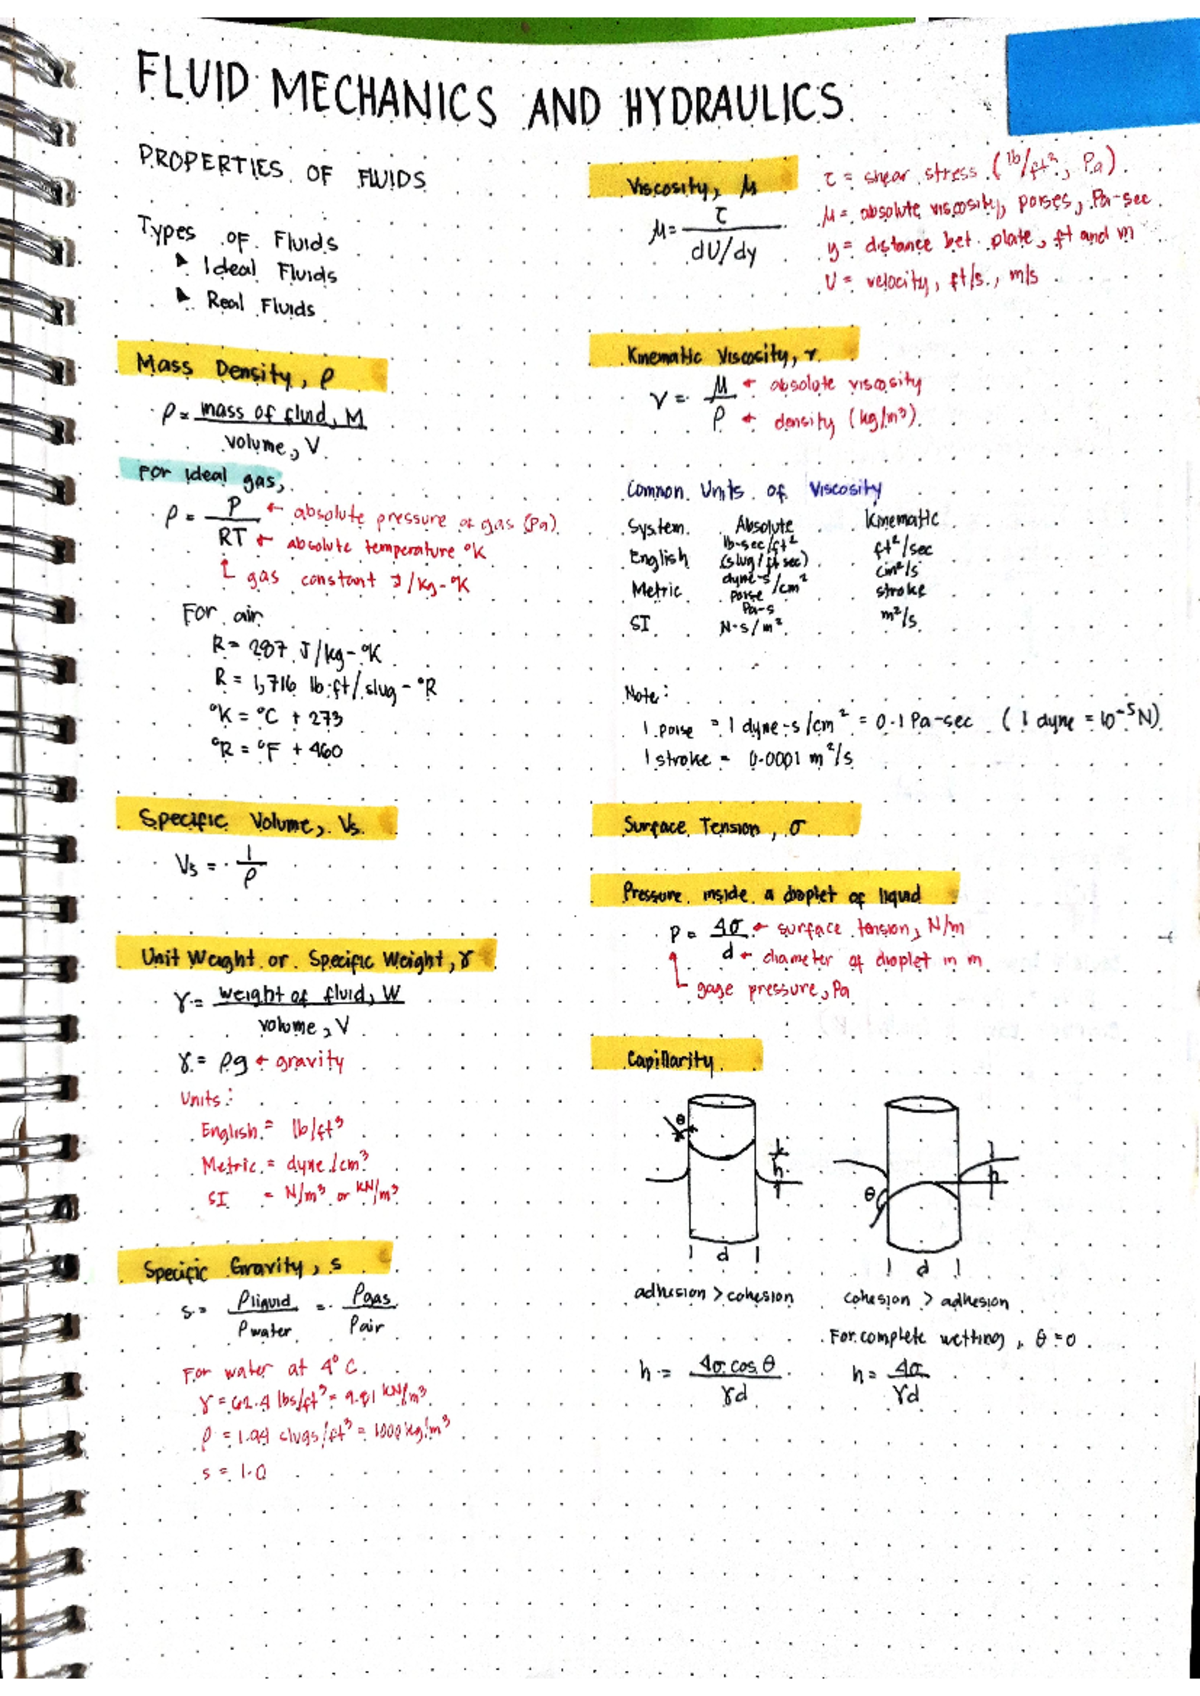 FLUID MECHANICS AND HYDRAULICS
PROPERTIES OF FLUIDS
Types of Fluids
▶ Ideal Fluids
▶ Real Fluids
Mass Density, ρ
ρ = mass of fluid, M
volume, V
For ideal gas,
ρ = P ← absolute pressure of gas (Pa)
RT ← absolute temperature °K
gas constant J/kg-°K
For air
R = 287 J/kg-°K
R = 1,716 lb·ft/slug-°R
°K = °C + 273
°R = °F + 460
Specific Volume, Vs
Vs = 1
ρ
Unit Weight or Specific Weight, γ
γ = weight of fluid, W
volume, V
γ = ρg ← gravity
Units:
English = lb/ft³
Metric = dyne/cm³
SI = N/m³ or KN/m³
Specific Gravity, s
s = ρliquid = ρgas
ρwater ρair
For water at 4°C.
γ = 62.4 lbs/ft³ = 9.81 KN/m³
ρ = 1.94 slugs/ft³ = 1000 kg/m³
s = 1.0
Viscosity, μ
μ = τ
dU/dy
τ = shear stress (lb/ft², Pa)
μ = absolute viscosity, poises, Pa-sec
y = distance bet. plate, ft and m
U = velocity, ft/s, m/s
Kinematic Viscosity, γ
ν = μ ← absolute viscosity
ρ ← density (kg/m³)
Common Units of Viscosity
System Absolute Kinematic
English lb-sec/ft² (slug/ft sec) ft²/sec
Metric dyne-s/cm² poise cm²/s stroke
SI Pa-s N-s/m² m²/s
Note:
1 poise = 1 dyne-s/cm² = 0.1 Pa-sec (1 dyne = 10⁻⁵N)
1 stroke = 0.0001 m²/s
Surface Tension, σ
Pressure inside a droplet of liquid
P = 4σ ← surface tension, N/m
d ← diameter of droplet in m
gage pressure, Pa
Capillarity
θ
h
d
adhesion > cohesion
θ
h
d
cohesion > adhesion
For complete wetting, θ = 0
h = 4σ cos θ
γd
h = 4σ
γd